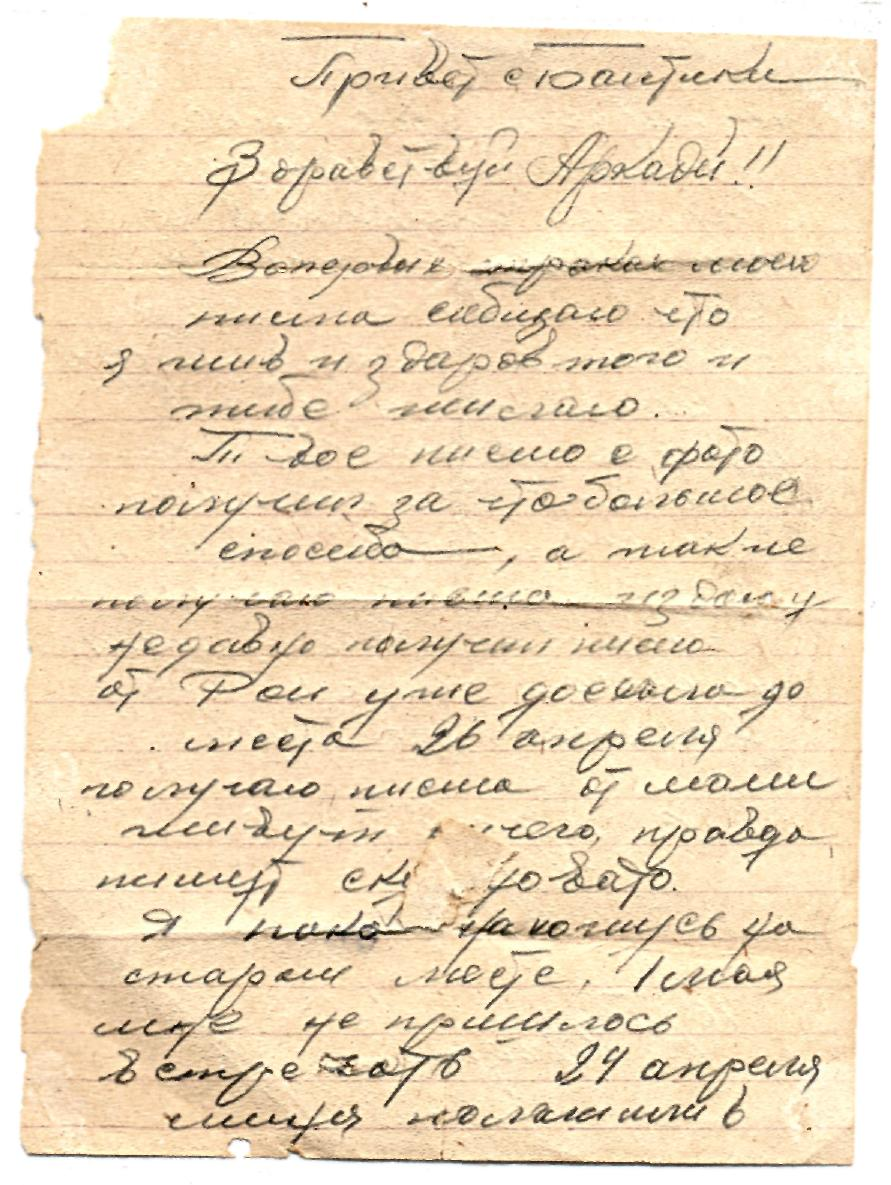 Привет с Балтики
Здравствуй Аркади!!
Воперевых строках моего
писма сообщаю что
я жив и здаров того и
тибе жилаю.
Твое писмо с фото
получил за что большое
спосибо, а также
получаю писма из дому
недавно получил писмо
от Раи уже доехала до
места 26 апреля
получаю писма от мами
живут ничего, правда
пишет
Я пока нахожусь на
старом месте, 1 мая
мне не пришлось
встречать 24 апреля
миня положили в